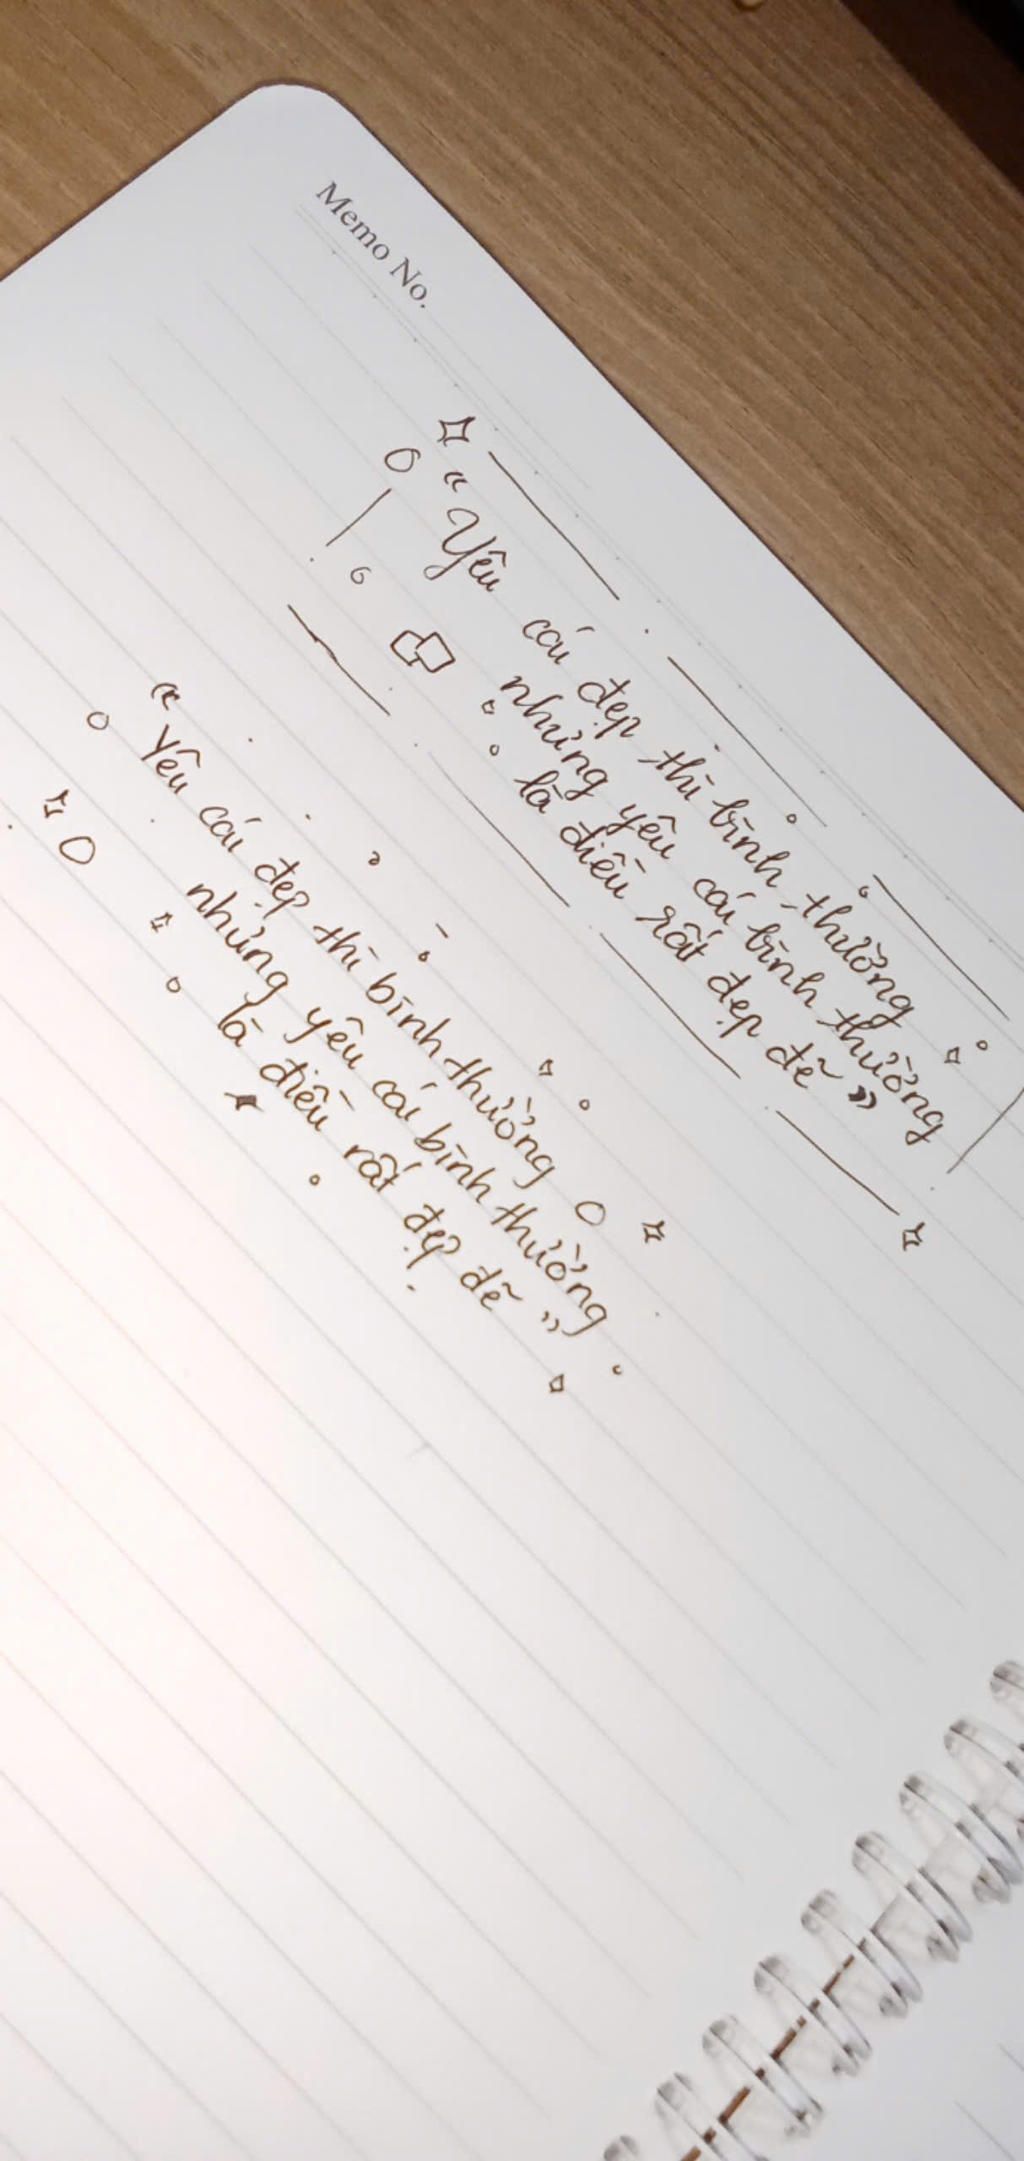 Memo No.
“Yêu cái đẹp thì bình thường
nhưng yêu cái bình thường
là điều rất đẹp đẽ”
“Yêu cái đẹp thì bình thường
nhưng yêu cái bình thường
là điều rất đẹp đẽ”